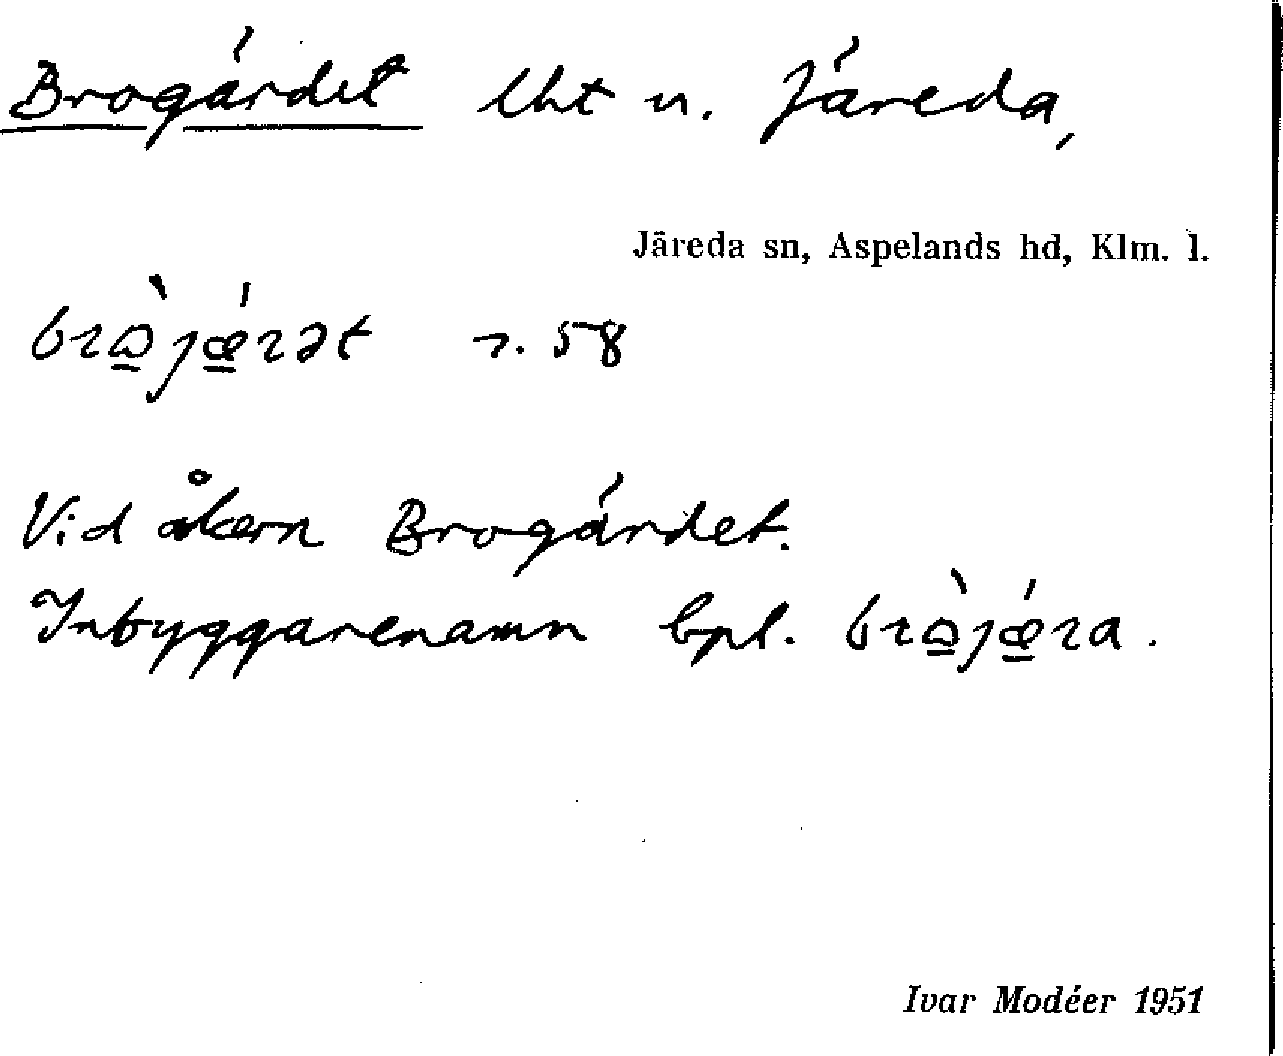 Brogärdet lht u. Järeda,
Järeda sn, Aspelands hd, Klm. l.
58
Vid åkern Brogärdet.
Inbyggarenamn bpl.
Ivar Modéer 1951